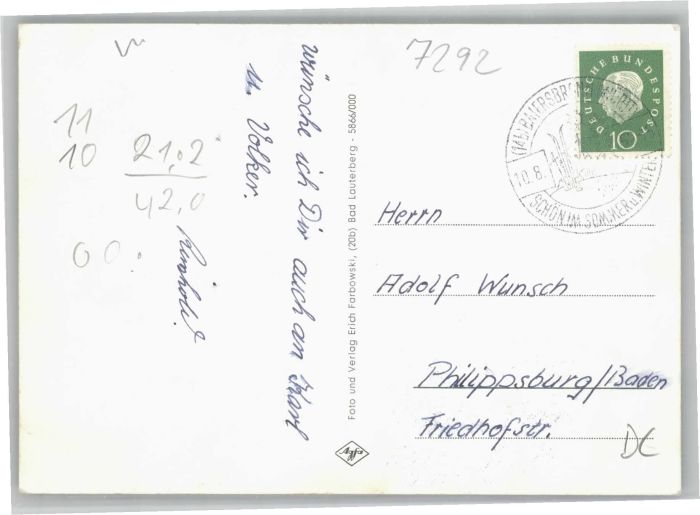 7292
11
10
21,02
42,0
00.
wünsche ich Dir auch an Karl
u. Volker.
Reinhold.
Foto und Verlag Erich Farbowski, (20b) Bad Lauterberg - 5866/000
Agfa
DEUTSCHE BUNDESPOST
10
(14b) BAIERSBRONN
10.8.
SCHÖN IM SOMMER U. WINTER
Herrn
Adolf Wunsch
Philippsburg/Baden
Friedhofstr.
DC